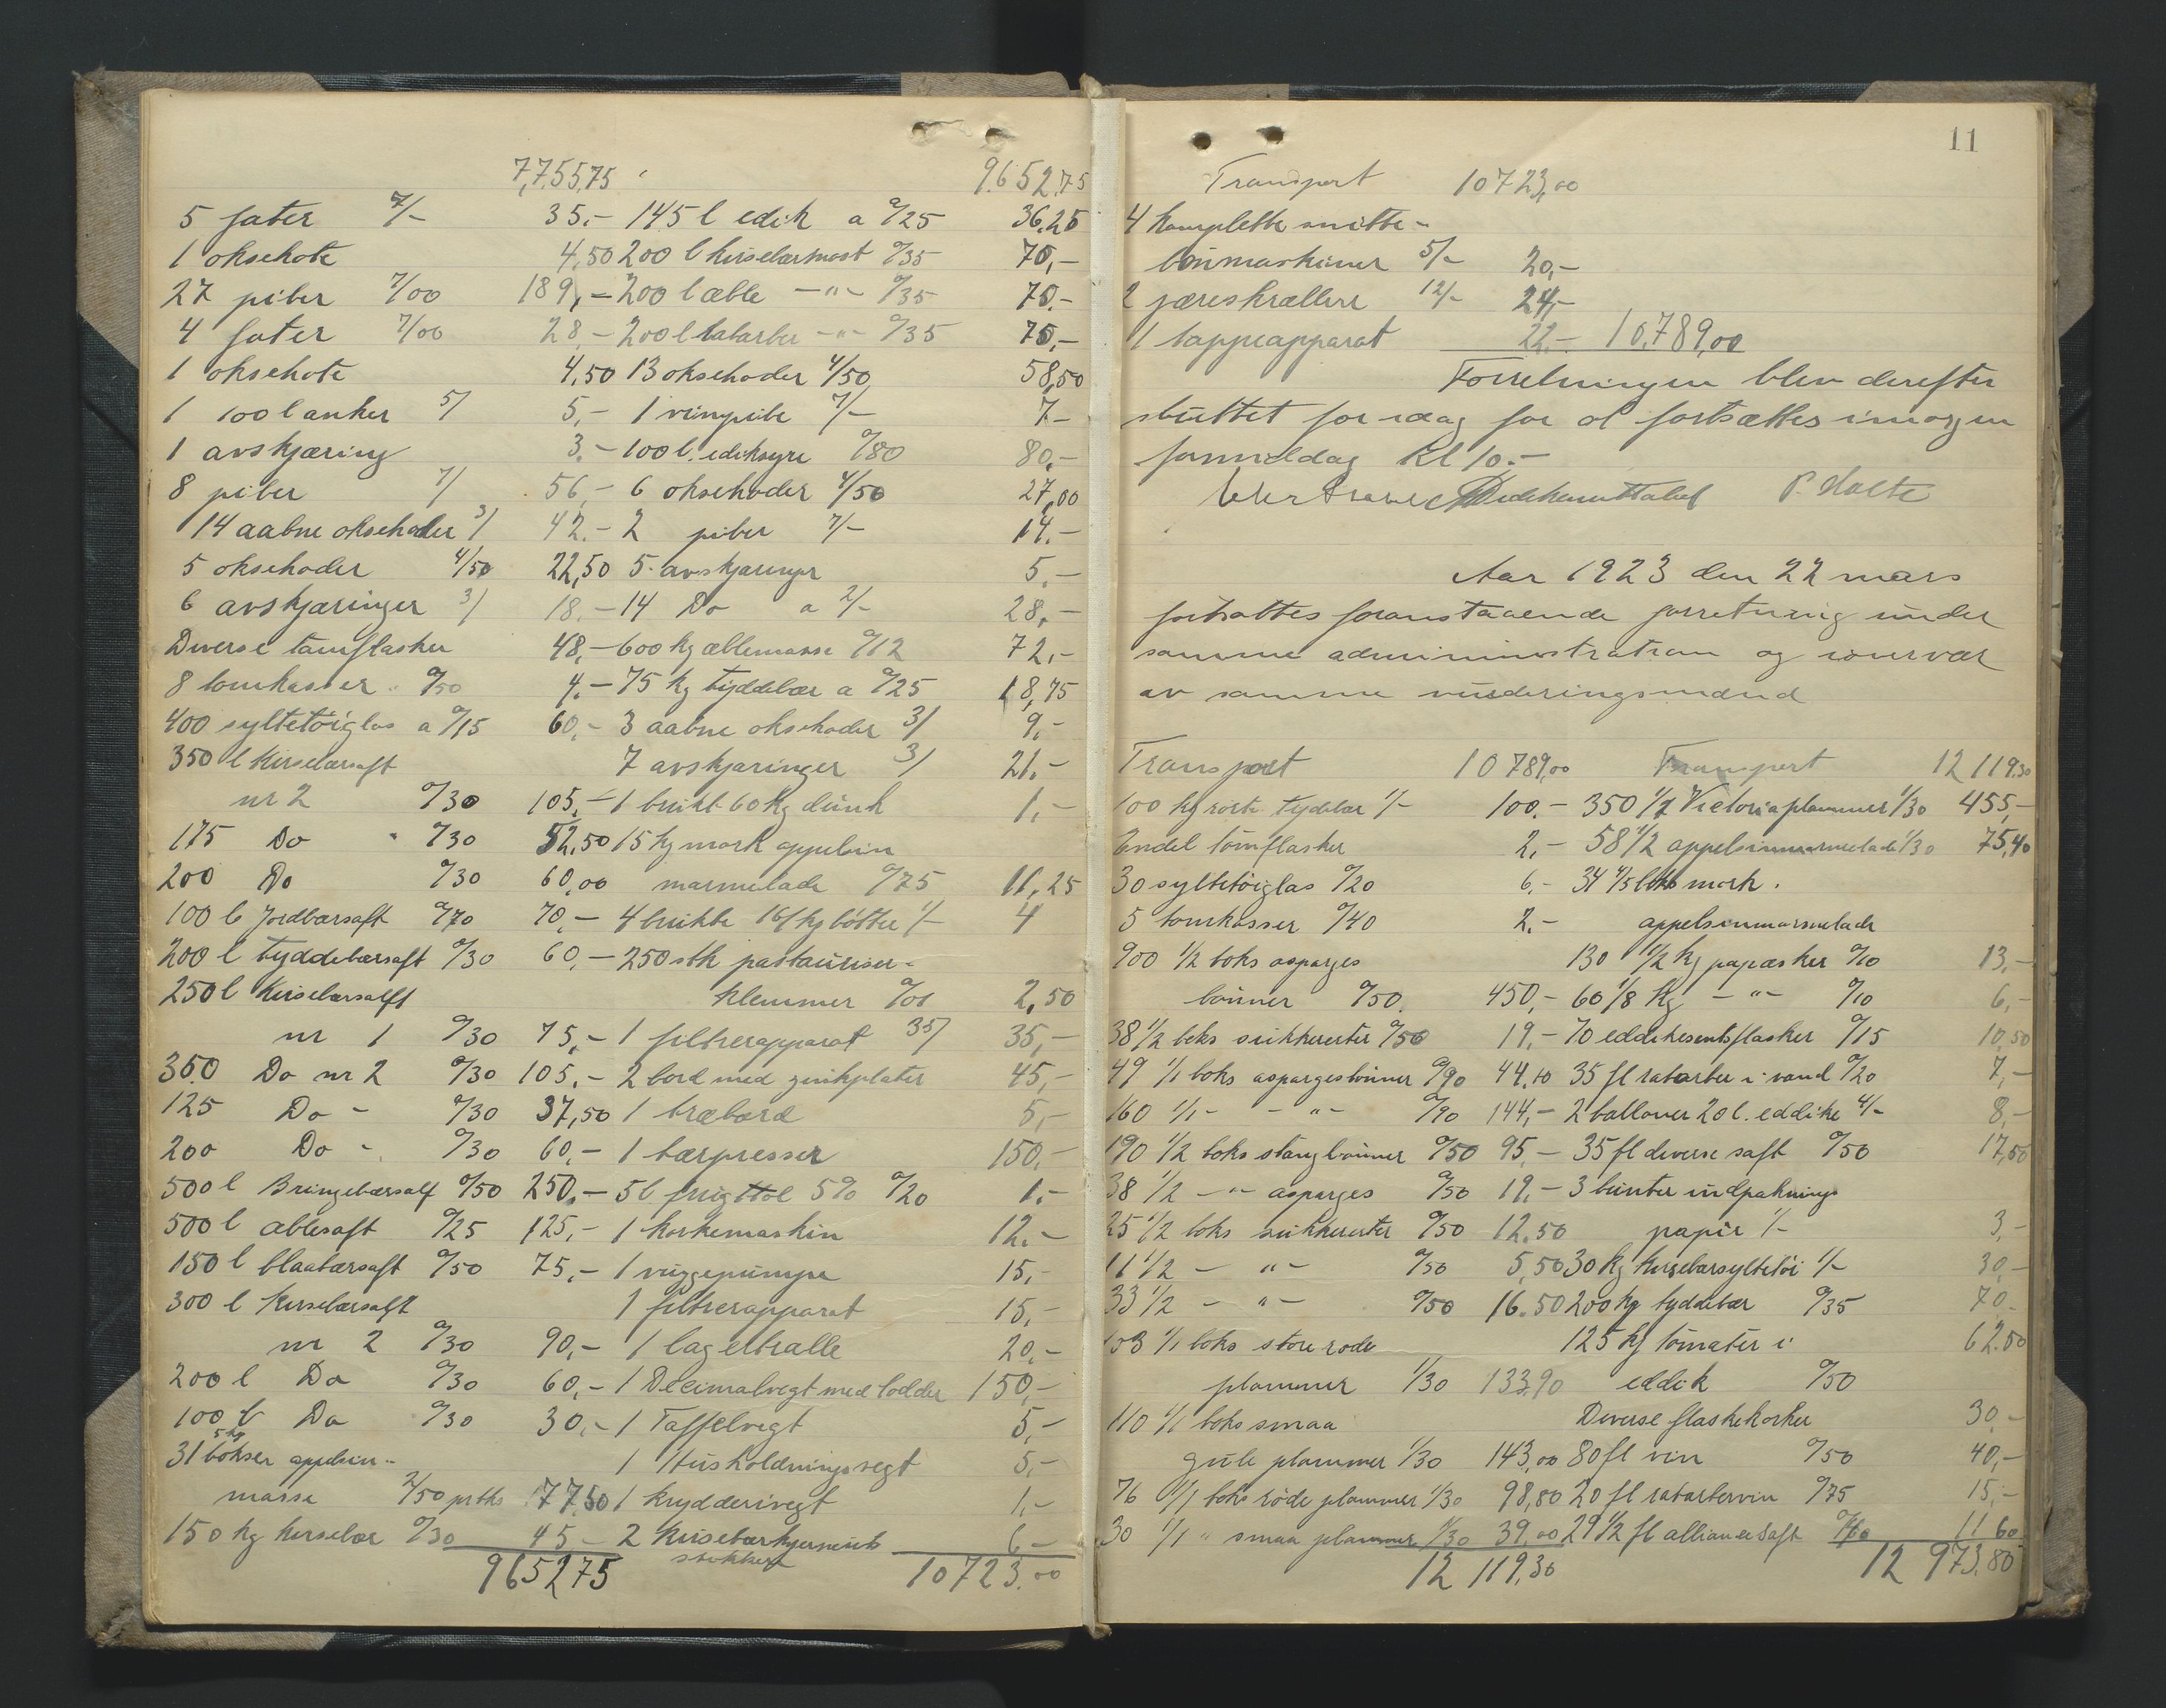 7,755,75
5 fater 7/- 35.-
1 oksehote 4,50
27 piber 7/00 189,-
4 fater 7/00 28,-
1 oksehote 4,50
1 100 l anker 5/ 5,-
1 avskjæring 3.-
8 piber 7/ 56,-
14 aabne oksehoder 3/ 42.-
5 oksehoder 4/50 22,50
6 avskjæringer 3/ 18.-
Diverse tomflasker 48,-
8 tomkasser 0/50 4.-
400 syltetöiglas a 0/15 60,-
350 l kirsebærsaft
nr 2 0/30 105,-
175 Do 0/30 52,50
200 Do 0/30 60,00
100 l Jordbærsaft 0/70 70,-
200 l tyddebærsaft 0/30 60,-
250 l kirsebærsafft
nr 1 0/30 75,-
350 Do nr 2 0/30 105,-
125 Do - 0/30 37,50
200 Do - 0/30 60,-
500 l Bringebærsaf 0/50 250,-
500 l æblesaft 0/25 125,-
150 l blaabærsaft 0/50 75,-
300 l kirsebærsaft
nr 2 0/30 90,-
200 l Do 0/30 60,-
100 l Do 0/30 30,-
5 kg
31 bökser appelsin-
masse 2/50 pr bks 77,50
150 kg kirsebær 0/30 45-
9652 75
9652,75
145 l edik a 0/25 36,25
200 l kirsebærmost 0/35 70,-
200 l æble -"- 0/35 70.-
200 l rabarber -"- 0/35 70,-
13 oksehoder 4/50 58,50
1 vinpibe 7/- 7-
100 l. ediksyre 0/80 80,-
6 oksehoder 4/50 27,00
2 piber 7/- 14.-
5 avskjæringer 5.-
14 Do a 2/- 28,-
600 kg æblemasse 0/12 72,-
75 kg tyddebær a 0/25 18,75
3 aabne oksehoder 3/ 9,-
7 avskjæringer 3/ 21.-
1 brukt 60 kg dunk 1,-
15 kg mork appelsin
marmelade 0/75 11,25
4 brukte 16/ kg bötter 1/- 4
250 stk pastauriser-
klemmer 0/01 2,50
1 filtrerapparat 35/ 35,-
2 bord med zinkplater 45,-
1 træbord 5,-
1 bærpresser 150,-
5 l frugttol 5% 0/20 1.-
1 korkemaskin 12.-
1 vuggepumpe 15,-
1 filtrerapparat 15,-
1 lagertralle 20,-
1 Decimalvegt med lodder 150,-
1 Taffelvegt 5,-
1 Husholdningsvegt 5,-
1 krydderivegt 1,-
2 kirsebærkjerneut-
stikkere 6-
10723.00
11
Transport 10723,00
4 komplette snitte-
bönmaskiner 5/- 20,-
2 jæreskrællere 12/- 24,-
1 tappeapparat 22.- 10.789,00
Forretningen blev derefter
sluttet for idag for at fortsættes imorgen
formiddag kl 10.-
P. Holte
Aar 1923 den 22 mars
fortsattes foranstaaende forretning under
samme administration og inærvær
av samme vurderingsmænd
Transport 10789,00
100 kg rørte tydebær 1/- 100.-
Endel tömflasker 2,-
30 syltetöiglas 0/20 6.-
5 tomkasser 0/40 2.-
900 1/2 boks asparges
bönner 0/50 450,-
38 1/2 boks sukkererter 0/50 19.-
49 1/1 boks aspargesbönner 0/90 44.10
160 1/1 - -"- 0/90 144,-
190 1/2 boks stangbönner 0/50 95,-
38 1/2 -"- asparges 0/50 19,-
25 1/2 boks sukkererter 0/50 12.50
11 1/2 - "- 0/50 5,50
33 1/2 - "- 0/50 16.50
103 1/1 boks store röde
plommer 1/30 133,90
110 1/1 boks smaa
gule plommer 1/30 143,00
76 1/1 boks röde plommer 1/30 98,80
30 1/1 " smaa plommer 1/30 39,00
12 119,30
Transport 12 119,30
350 1/2 Victoriaplommer 1/30 455,-
58 1/2 appelsinmarmelade 1/30 75,40
34 4/5 boks mork.
appelsinmarmelade
130 1/2 kg papæsker 0/10 13,-
60 1/8 kg -"- 0/10 6,-
70 eddikesentsflasker 0/15 10,50
35 fl rabarber i vand 0/20 7,-
2 balloner 20 l. eddike 4/- 8,-
35 fl diverse saft 0/50 17,50
3 bunter indpaknings
papir 1/- 3,-
30 kg kirsebærsyltetöi 1/- 30,-
200 kg tyddebær 0/35 70-
125 kg tomater i 62.50
eddik 0/50
Diverse flaskekorker 30.-
80 fl vin 0/50 40,-
20 fl rabarbervin 0/75 15,-
29 1/2 fl alliance saft 0/40 11 60
12 973,80